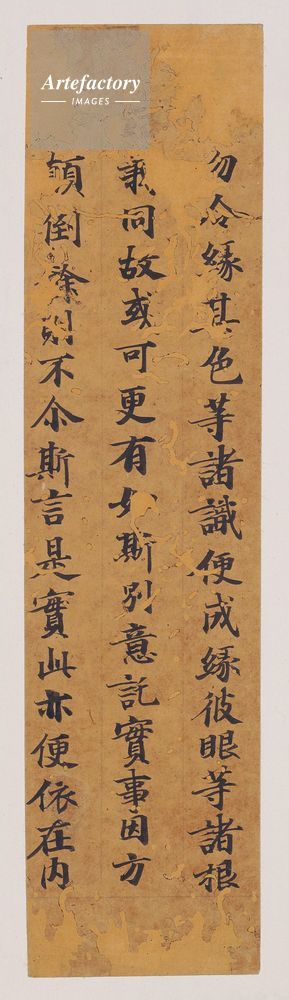 Artefactory
IMAGES
勿令緣其色等諸識便成緣彼眼等諸根
同故或可更有如斯別意託實事因方
倒發則不尒斯言是實此亦便依在内